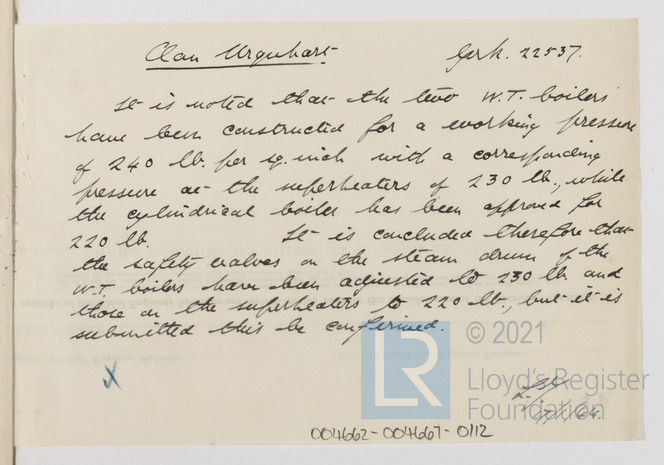 Clan Urquhart. Grk. 22537.
It is noted that the two W.T. boilers
have been constructed for a working pressure
of 240 lb. per sq. inch with a corresponding
pressure at the superheaters of 230 lb., while
the cylindrical boiler has been approved for
220 lb. It is concluded therefore that
the safety valves on the steam drum of the
W.T. boilers have been adjusted to 230 lb and
those on the superheaters to 220 lb., but it is
submitted this be confirmed.
X
LR
© 2021
Lloyd's Register
Foundation
004662-004667-0112